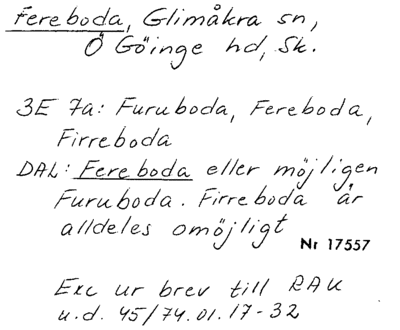 Fereboda, Glimåkra sn,
Ö Göinge hd, Sk.
3E 7a: Furuboda, Fereboda,
Firreboda
DAL: Fereboda eller möjligen
Furuboda. Firreboda är
alldeles omöjligt
Nr 17557
Exc ur brev till RAÄ
u.d. 45/74.01.17-32